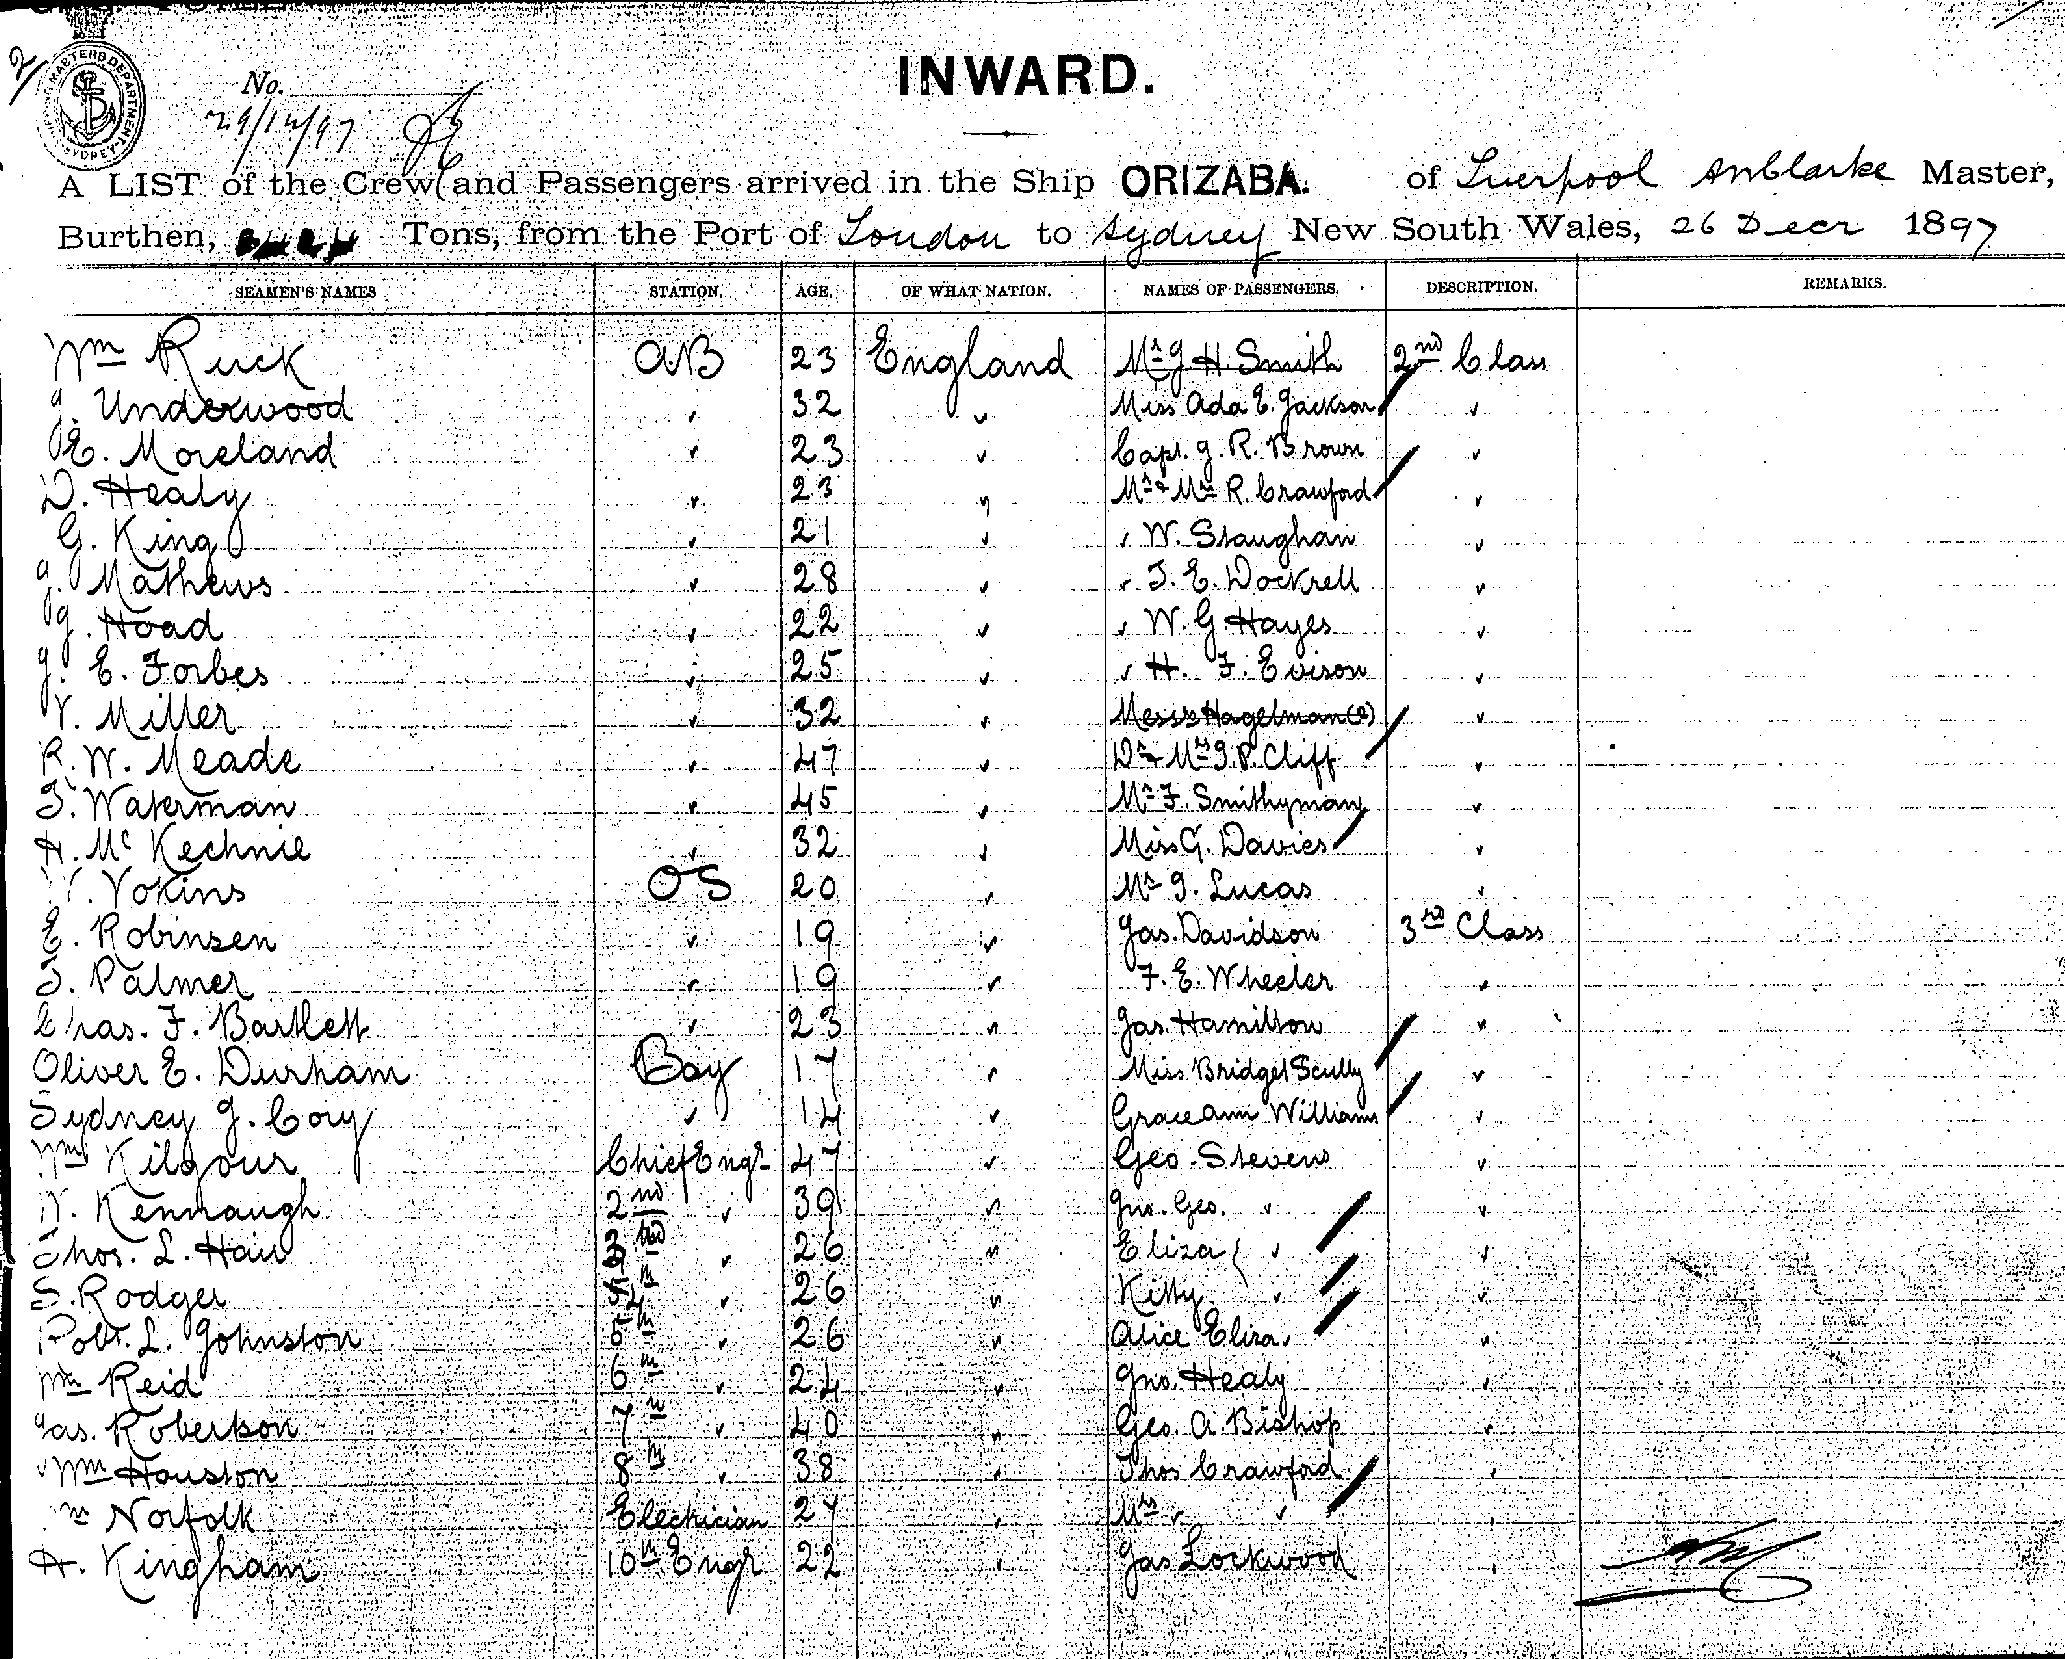 2/
MASTERS DEPARTMENT
SYDNEY
No.
29/12/97
INWARD.
A LIST of the Crew and Passengers arrived in the Ship ORIZABA. of Liverpool Master,
Burthen, Tons, from the Port of London to Sydney New South Wales, 26 Decr 1897
SEAMEN'S NAMES STATION. AGE. OF WHAT NATION. NAMES OF PASSENGERS. DESCRIPTION. REMARKS.
Wm Ruck AB 23 England Mr J H Smith 2nd Class
J. Underwood " 32 " Miss Ada E. Jackson "
E. Moreland " 23 " Capt. J. R. Brown "
D. Healy " 23 " Mr & Mrs R. Crawford "
G. King " 21 " " W. Staughan "
J. Mathews " 28 " " T. E. Dockrell "
J. Hoad " 22 " " W. G. Hayes "
J. E. Forbes " 25 " " H. F. Evison "
V. Miller " 32 " Messrs Hagelman (2) "
R. W. Meade " 47 " Dr & Mrs J. P. Cliff "
T. Waterman " 45 " Mr F. Smithyman "
H. Mc Kechnie " 32 " Miss G. Davies "
W. Vokins OS 20 " Mr J. Lucas "
E. Robinsen " 19 " Jas. Davidson 3rd Class
T. Palmer " 19 " F. E. Wheeler "
Chas. F. Bartlett " 23 " Jas. Hamilton "
Oliver E. Durham Boy 17 " Miss Bridget Scully "
Sydney J. Cory " 14 " Grace Ann Williams "
Wm Kilgour Chief Engr 47 " Geo. Stevens "
W. Kennaugh 2nd " 39 " Jno. Geo. " "
Thos. L. Haw 3rd " 26 " Eliza " "
S. Rodger " 26 " Kitty " "
Robt. L. Johnston 5th " 26 " Alice Eliza " "
Wm Reid 6th " 24 " Jno. Healy "
Jas. Robertson 7th " 40 " Geo. A Bishop "
Wm Houston 8th " 38 " Thos Crawford "
Norfolk Electrician 27 " Mrs " " "
H. Kingham 10th Engr 22 " Jas Lockwood "